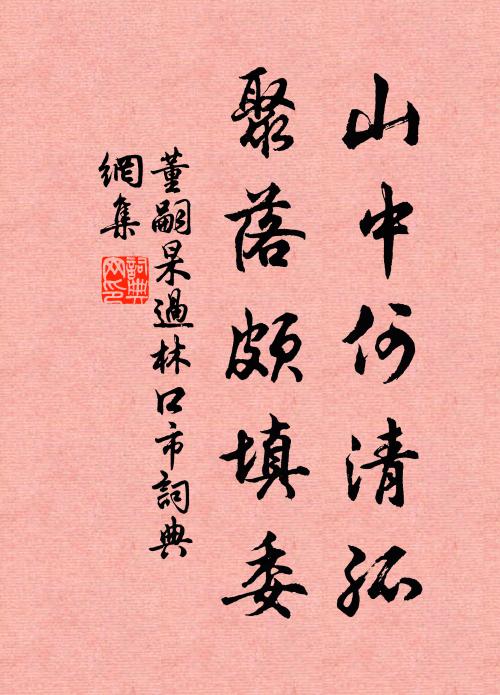 山中何清孤
聚落頗填委
董嗣杲過林口市詞典
網集
詞典網印